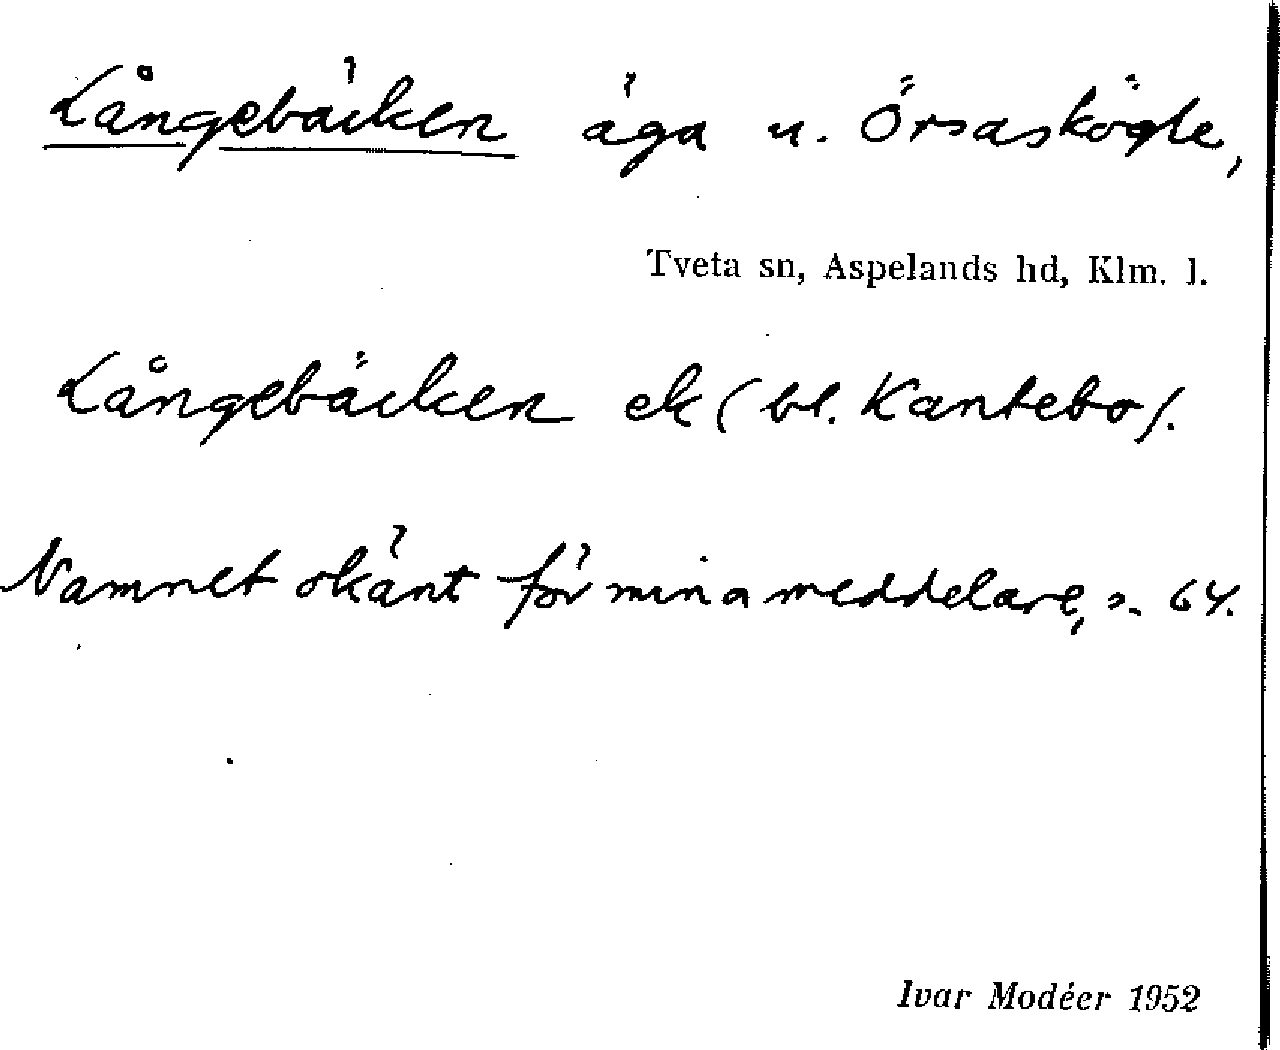 Långebäcken äga u. Örsaskögle,
Tveta sn, Aspelands hd, Klm. l.
Långebäcken ek (bl. Kantebo).
Namnet okänt för mina meddelare, s. 64.
Ivar Modéer 1952